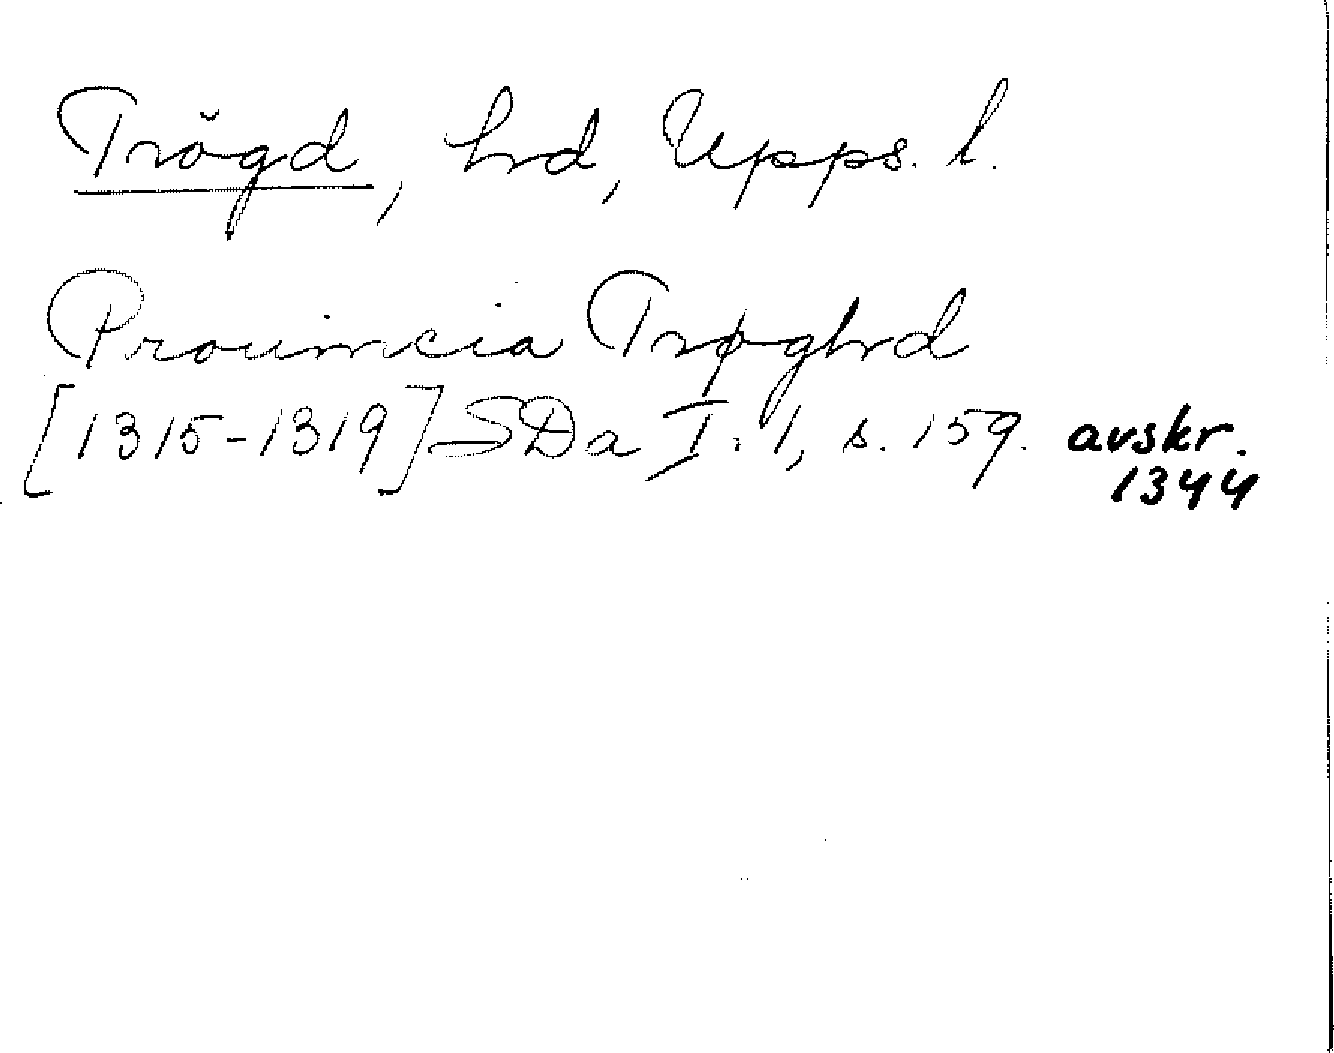 Trögd, hd, Upps. l.
Prouincia Trøghd
[1315-1319] SDa I. 1, s. 159. avskr.
1344